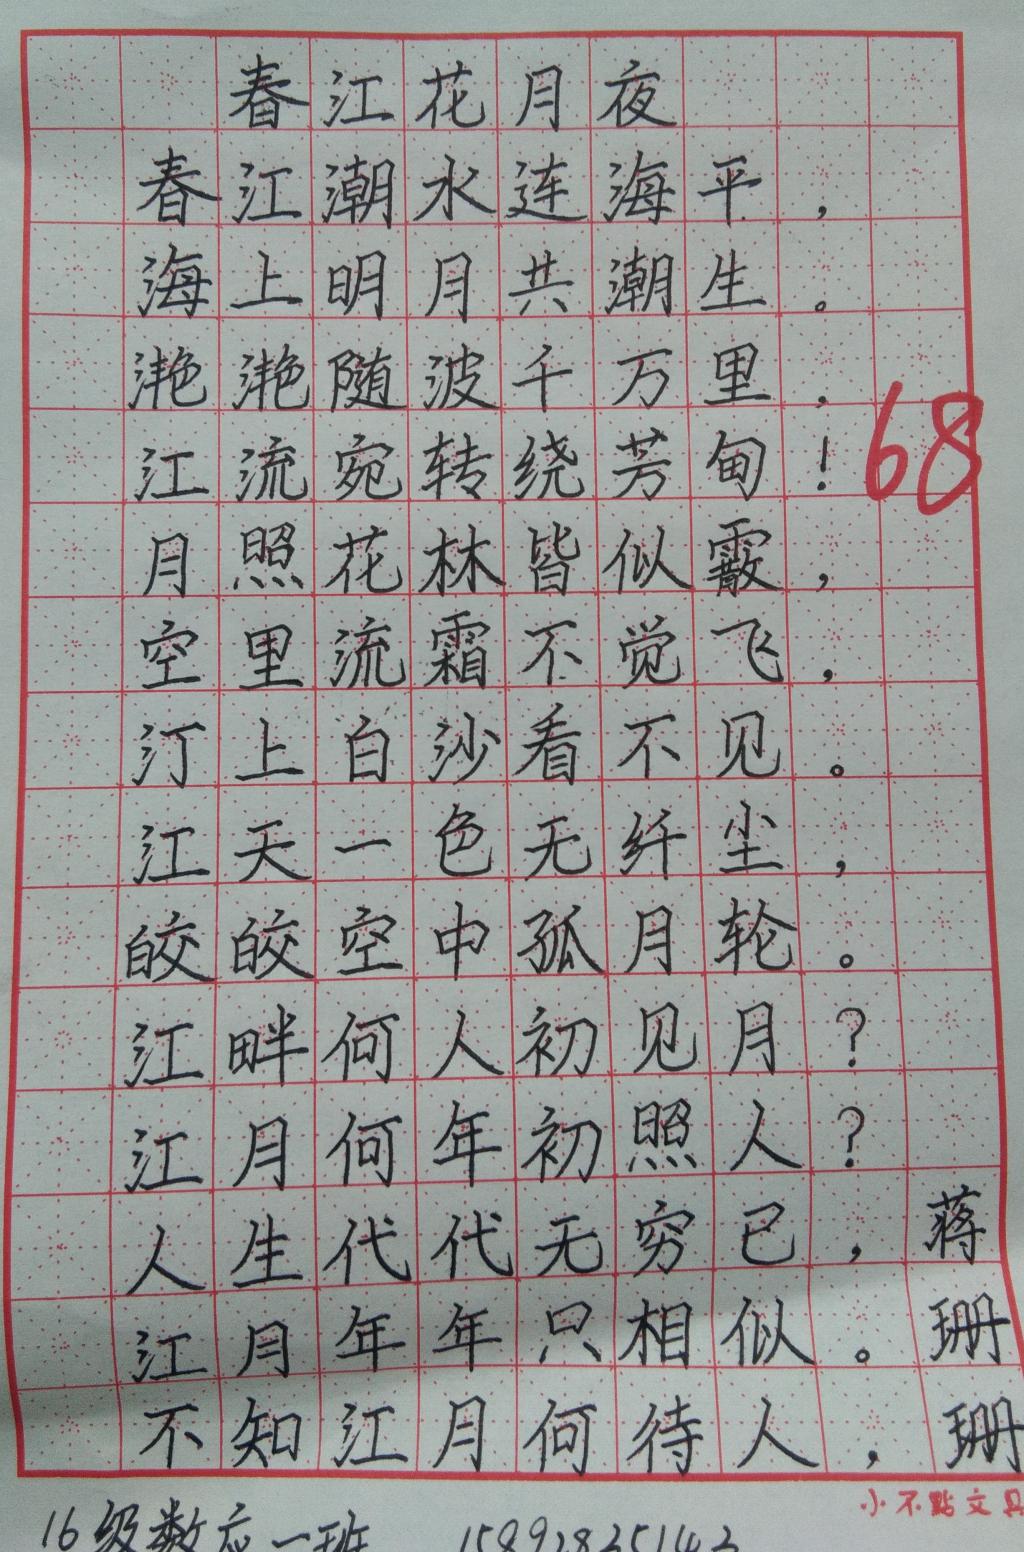 春江花月夜
春江潮水连海平，
海上明月共潮生。
滟滟随波千万里，
江流宛转绕芳甸！
68
月照花林皆似霰，
空里流霜不觉飞，
汀上白沙看不见。
江天一色无纤尘，
皎皎空中孤月轮。
江畔何人初见月？
江月何年初照人？
人生代代无穷已，
江月年年只相似。
不知江月何待人，
蒋珊珊
小不點文具
16级数应一班